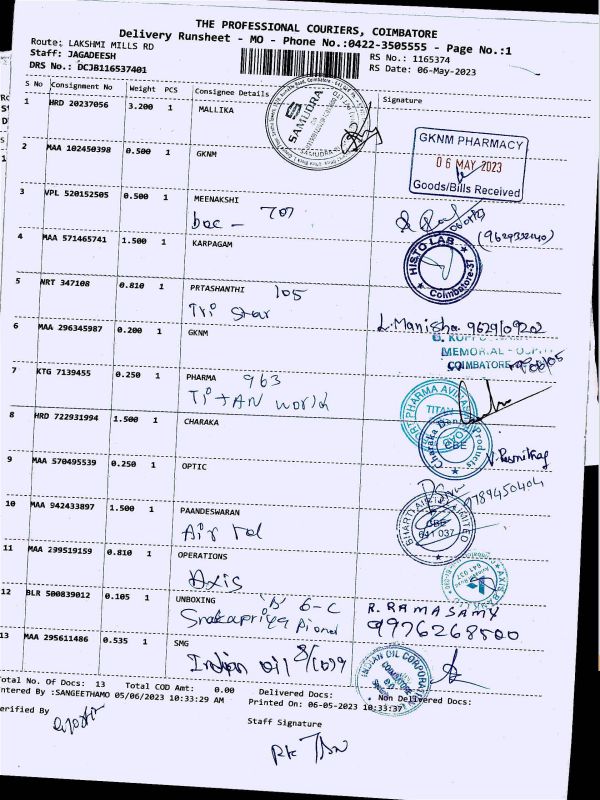 THE PROFESSIONAL COURIERS, COIMBATORE
Delivery Runsheet - MO - Phone No.:0422-3505555 - Page No.:1
Route: LAKSHMI MILLS RD
Staff: JAGADEESH
RS No.: 1165374
DRS No.: DCJB116537401
RS Date: 06-May-2023
S No Consignment No Weight PCS Consignee Details Signature
1 HRD 20237056 3.200 1 MALLIKA
SAMUDRA
2 MAA 102450398 0.500 1 GKNM
GKNM PHARMACY
06 MAY 2023
Goods/Bills Received
3 VPL 520152505 0.500 1 MEENAKSHI
boc - 707
(9629332140)
4 MAA 571465741 1.500 1 KARPAGAM
HISTO LAB
Coimbatore-37
5 NRT 347108 0.810 1 PRTASHANTHI 105
Tri Star
L. Manisha. 9629109202
6 MAA 296345987 0.200 1 GKNM
MEMORIAL
COIMBATORE
7 KTG 7139455 0.250 1 PHARMA 963
TiTAN world
TITAN
8 HRD 722931994 1.500 1 CHARAKA
Charaka Products
CBE
9 MAA 570495539 0.250 1 OPTIC
9789450404
10 MAA 942433897 1.500 1 PAANDESWARAN
Air Tel
BHARTI AIRTEL LIMITED
CBE
641 037
11 MAA 299519159 0.810 1 OPERATIONS
Axis
AXIS BANK
12 BLR 500839012 0.105 1 UNBOXING 'B' 6-C
R. RAMASAMY
9976268500
13 MAA 295611486 0.535 1 SMG
Indian oil
INDIAN OIL CORPORATION
COIMBATORE
Total No. Of Docs: 13 Total COD Amt: 0.00 Delivered Docs: Non Delivered Docs:
ntered By :SANGEETHAMO 05/06/2023 10:33:29 AM Printed On: 06-05-2023 10:33:37
erified By
Staff Signature